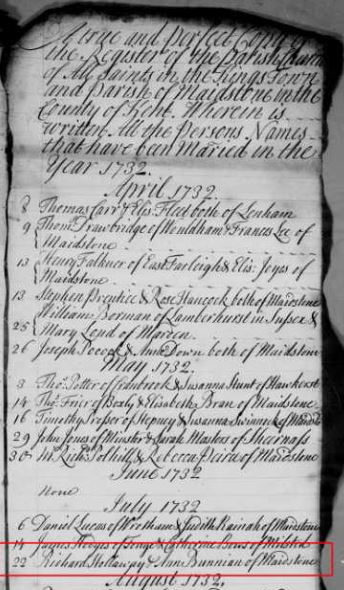 A true and perfect Copy of
the Register of the Parish Church
of All Saints in the Kings Town
and Parish of Maidstone in the
County of Kent. Wherein is
written All the Persons Names
that have been Maried in the
Year 1732.
April 1732
8 Thomas Carr & Elis: Fleet both of Lenham
9 Thom: Trawbridge of & Frances Lee of
Maidstone
13 Henry Falkner of East Farleigh & Elis: Joyes of
Maidstone
13 Stephen Prentice & Rose Hancock both of Maidstone
William Borman of Lamberhurst in Sussex &
25 Mary Lond of Marden
26 Joseph Pocock & Ann Down both of Maidstone
May 1732.
8 Tho: Potter of Cranbrook & Susanna Hunt of Hawkhurst
14 Tho: Frier of Boxly & Elisabeth Bran of Maidstone
16 Timothy Prosser of Stepney & Susanna of Maidst
29 John Jones of Minster & Sarah Masters of Sheerness
30 Mr. Rich: Polhill & Rebecca of Maidstone
June 1732
None
July 1732
6 Daniel Lucas of Wrotham & Judith of Maidstone
14 James Hedges of Tonge & Catherine of Milsted
22 Richard Hollaway & Anne Bunnian of Maidstone
August 1732.